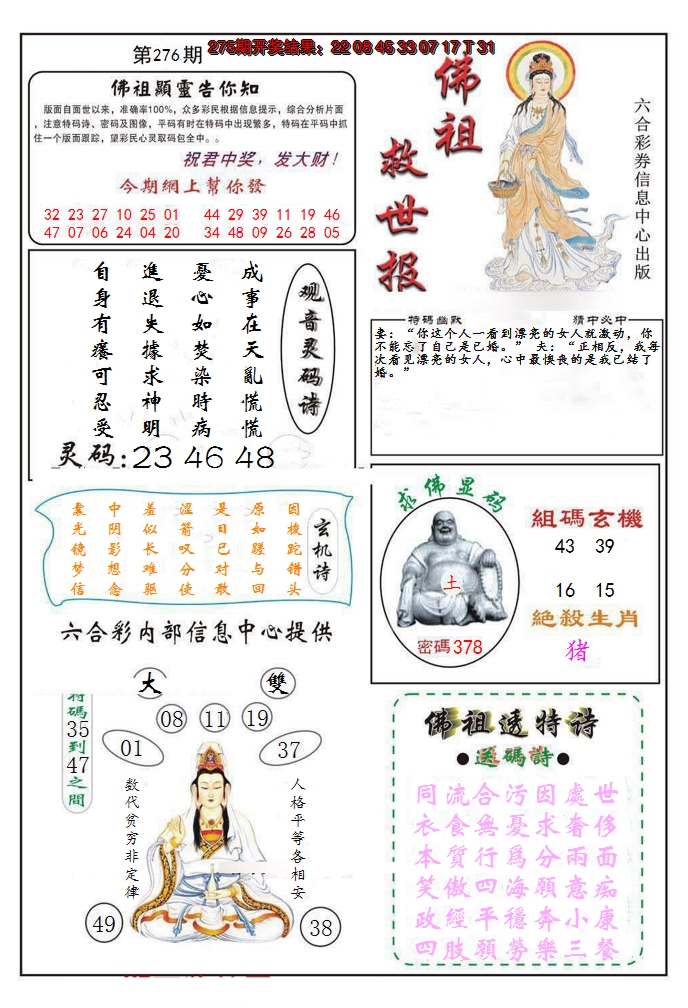 275期开奖结果：22 08 45 33 07 17丁31
第276期
佛祖顯靈告你知
版面自面世以来，准确率100%，众多彩民根据信息提示，综合分析片面
，注意特码诗、密码及图像，平码有时在特码中出现繁多，特码在平码中抓
住一个版面跟踪，望彩民心灵取码包全中。。
祝君中奖，发大财！
今期網上幫你發
32 23 27 10 25 01 44 29 39 11 19 46
47 07 06 24 04 20 34 48 09 26 28 05
佛祖
救世报
六合彩券信息中心出版
观音灵码诗
成事在天亂慌慌
憂心如焚染時病
進退失據求神明
自身有癢可忍受
灵码:23 46 48
特碼幽默
猜中必中
妻：“你这个人一看到漂亮的女人就激动，你
不能忘了自己是已婚。” 夫：“正相反，我每
次看见漂亮的女人，心中最懊丧的是我已结了
婚。”
玄机诗
因梭跎错头
原如蹉与回
是日已对敢
涩箭叹分使
羞似长难驱
中阴影想念
囊光镜梦信
六合彩内部信息中心提供
求佛显码
土
密碼378
組碼玄機
43 39
16 15
絶殺生肖
猪
大
雙
特碼35到47之間
08
11
19
01
37
数代贫穷非定律
人格平等各相安
49
38
佛祖透特诗
●送碼詩●
同流合污因處世
衣食無憂求奢侈
本質行爲分兩面
笑傲四海願意痴
政經平穩奔小康
四肢願勞樂三餐